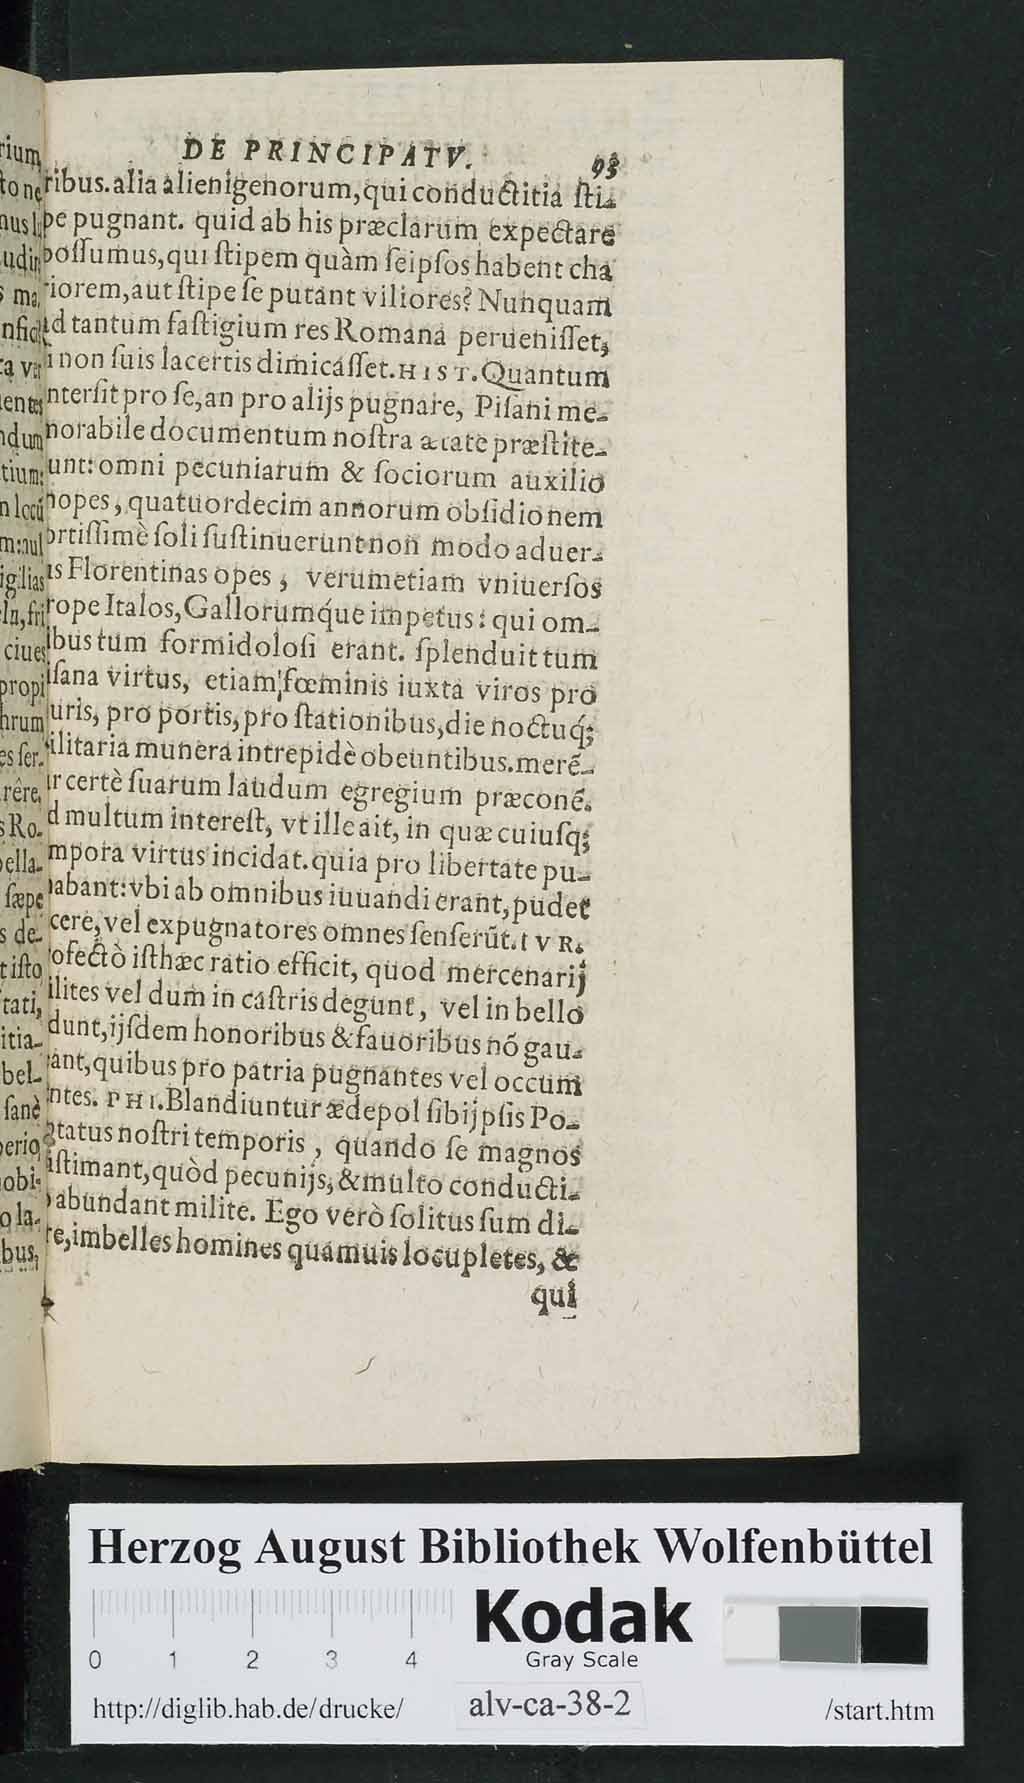 DE PRINCIPATV. 93
ribus. alia alienigenorum, qui conductitia ſti-
pe pugnant. quid ab his præclarum expectare
poſſumus, qui ſtipem quàm ſeipſos habent cha
riorem, aut ſtipe ſe putant viliores? Nunquam
ad tantum faſtigium res Romana perueniſſet,
i non ſuis lacertis dimicáſſet. HIST. Quantum
nterſit pro ſe, an pro alijs pugnare, Piſani me-
norabile documentum noſtra ætate præſtite-
unt: omni pecuniarum & ſociorum auxilio
nopes, quatuordecim annorum obſidionem
ortiſſimè ſoli ſuſtinuerunt non modo aduer-
us Florentinas opes, verumetiam vniuerſos
rope Italos, Gallorumq́ue impetus: qui om-
ibus tum formidoloſi erant. ſplenduit tum
iſana virtus, etiam fœminis iuxta viros pro
uris, pro portis, pro ſtationibus, die noctuq́;
ilitaria munera intrepidè obeuntibus. merẽ-
ur certè ſuarum laudum egregium præconẽ.
d multum intereſt, vt ille ait, in quæ cuiuſq;
mpora virtus incidat. quia pro libertate pu-
nabant: vbi ab omnibus iuuandi erant, pudet
cere, vel expugnatores omnes ſenſerũt. IVR.
ofectò iſthæc ratio efficit, quod mercenarij
ilites vel dum in caſtris degunt, vel in bello
dunt, ijſdem honoribus & fauoribus nõ gau-
ant, quibus pro patria pugnantes vel occum
ntes. PHI. Blandiuntur ædepol ſibijpſis Po-
tatus noſtri temporis, quando ſe magnos
iſtimant, quòd pecunijs, & multo conducti-
abundant milite. Ego verò ſolitus ſum di-
re, imbelles homines quamuis locupletes, &
qui
rium
to ne
nus
udin
ma
nſici
ta
entes
ndum
tium:
n locũ
m: nul
igilias
ln, fri
ciues
propi
hrum
es ſer-
rêre,
s Ro-
bella-
ſæpe
s de-
t iſto
tati,
itia-
bel-
ſanè
perio,
obi-
o la-
bus,
Herzog August Bibliothek Wolfenbüttel
Kodak
Gray Scale
0 1 2 3 4
http://diglib.hab.de/drucke/ alv-ca-38-2 /start.htm